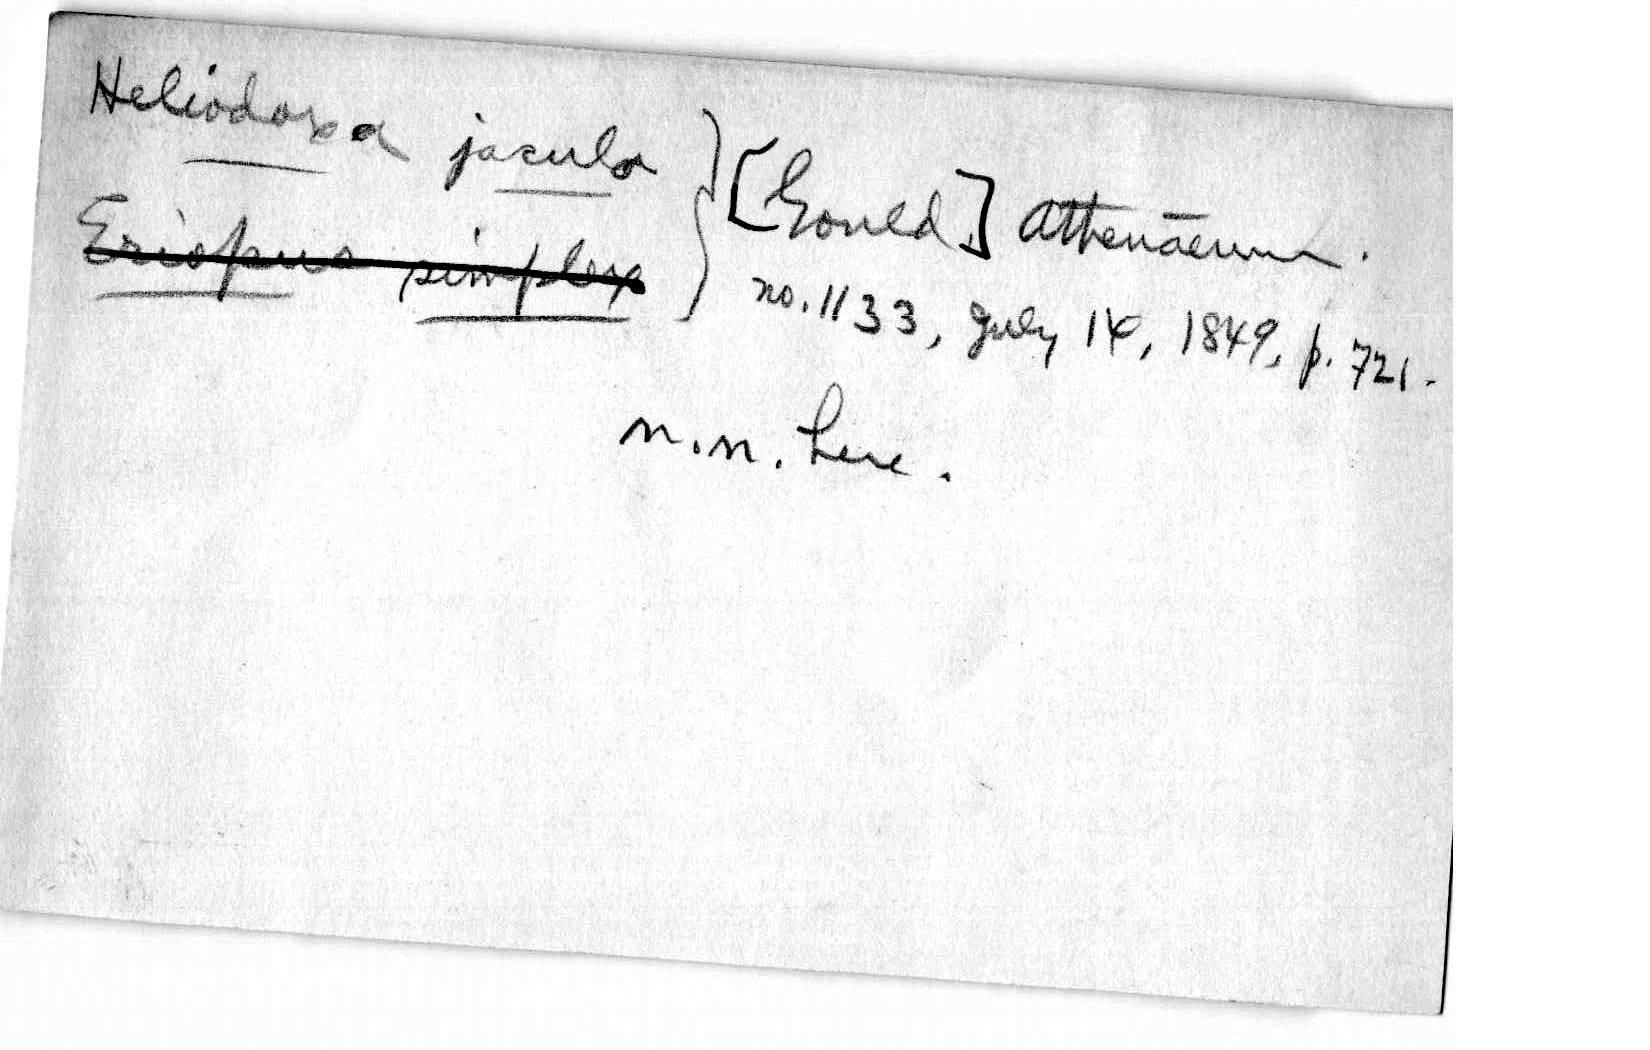 Heliodoxa jacula } [Gould] Athenaeum.
Eriopus simplex } no. 1133, July 14, 1849, p. 721.
n.n. here.